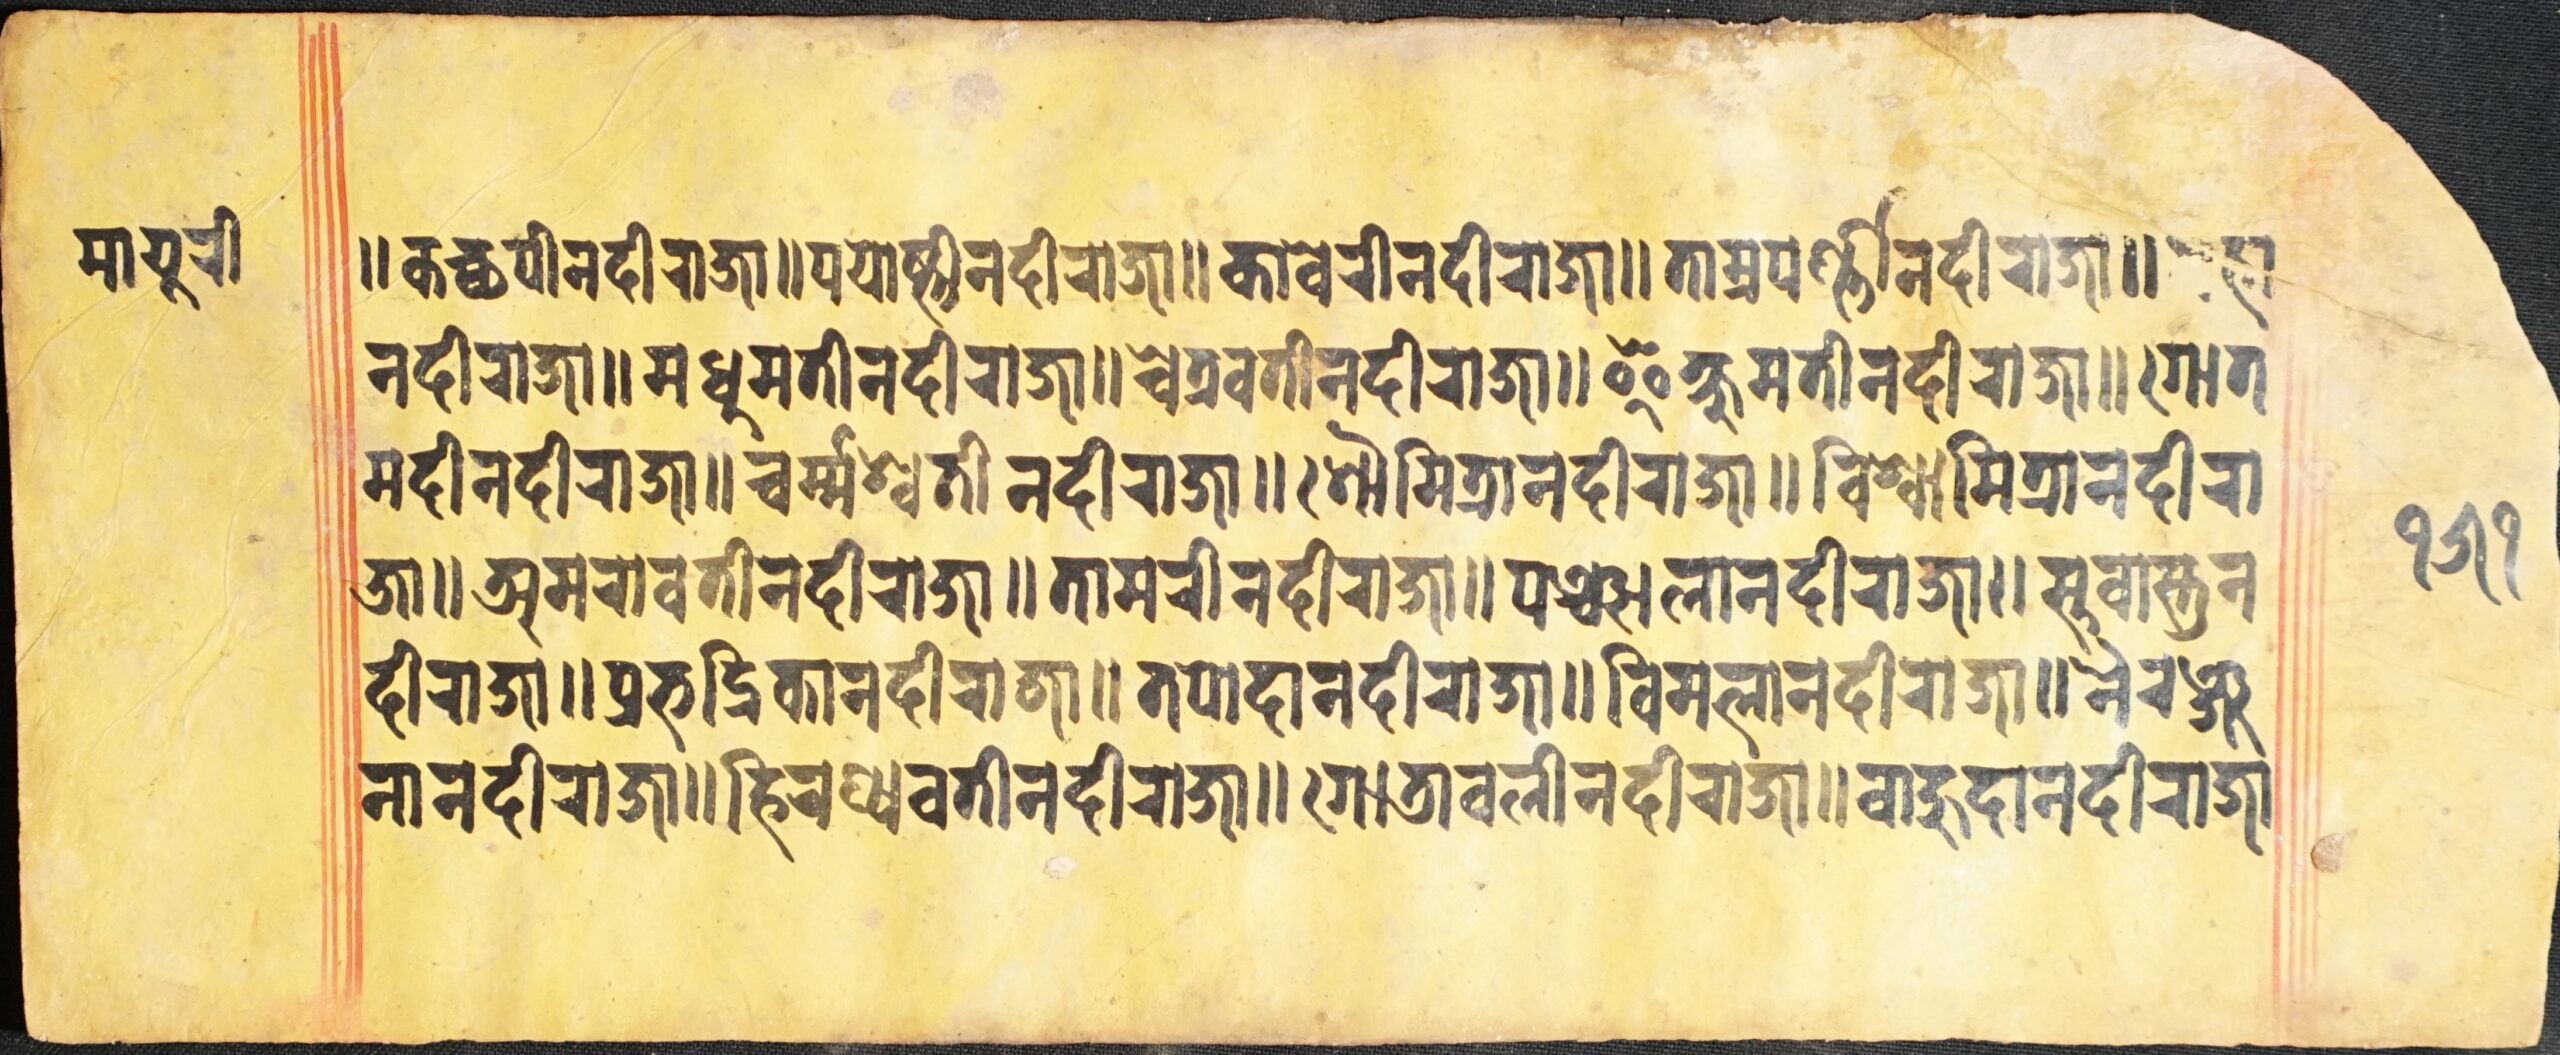 मायूरी
॥ कच्छपीनदीराजा ॥ पयोष्णीनदीराजा ॥ कावेरीनदीराजा ॥ ताम्रपर्ण्णीनदीराजा ॥
नदीराजा ॥ मधुमतीनदीराजा ॥ वेत्रवतीनदीराजा ॥ इक्षुमतीनदीराजा ॥ गोत
मदीनदीराजा ॥ चर्म्मश्वती नदीराजा ॥ शौमित्रानदीराजा ॥ विश्वामित्रानदीरा
जा ॥ अमरावतीनदीराजा ॥ तामरीनदीराजा ॥ पञ्चालानदीराजा ॥ सुवास्तुन
दीराजा ॥ प्रभद्रिकानदीराजा ॥ तपोदानदीराजा ॥ विमलानदीराजा ॥ नैरञ्जु
नानदीराजा ॥ हिरण्यवतीनदीराजा ॥ गोत्रावलीनदीराजा ॥ वाहुदानदीराजा